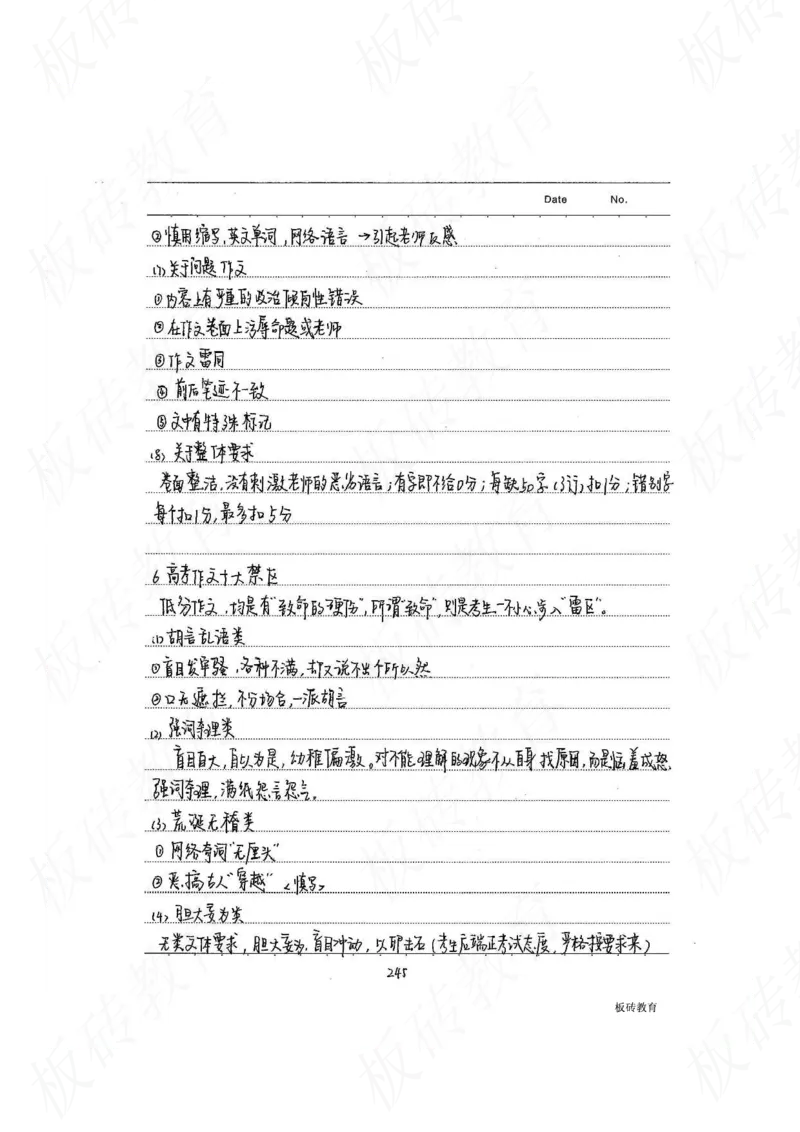 Date No.
②慎用缩写,英文单词,网络语言→引起老师反感
(7)关于问题作文
①内容上有严重的政治倾向性错误
②在作文卷面上污辱命题或老师
③作文雷同
④前后笔迹不一致
⑤文中有特殊标记
(8)关于整体要求
卷面整洁,没有刺激老师的恶劣语言;有字即不给0分;每缺50字(3行)扣1分;错别字
每个扣1分,最多扣5分
6.高考作文十大禁区
低分作文,均是有"致命的硬伤",所谓"致命",则是考生一不小心步入"雷区"。
(1)胡言乱语类
①盲目发牢骚,各种不满,却又说不出个所以然
②口无遮拦,不分场合,一派胡言
(2)强词夺理类
盲目自大,自以为是,幼稚偏激。对不能理解的现象不从自身找原因,而是恼羞成怒
强词夺理,满纸怨言怨气。
(3)荒诞无稽类
①网络奇词"无厘头"
②恶搞古人"穿越"<慎写>
(4)胆大妄为类
无类文体要求,胆大妄为,盲目冲动,以卵击石(考生应端正考试态度,严格按要求来)
245
板砖教育